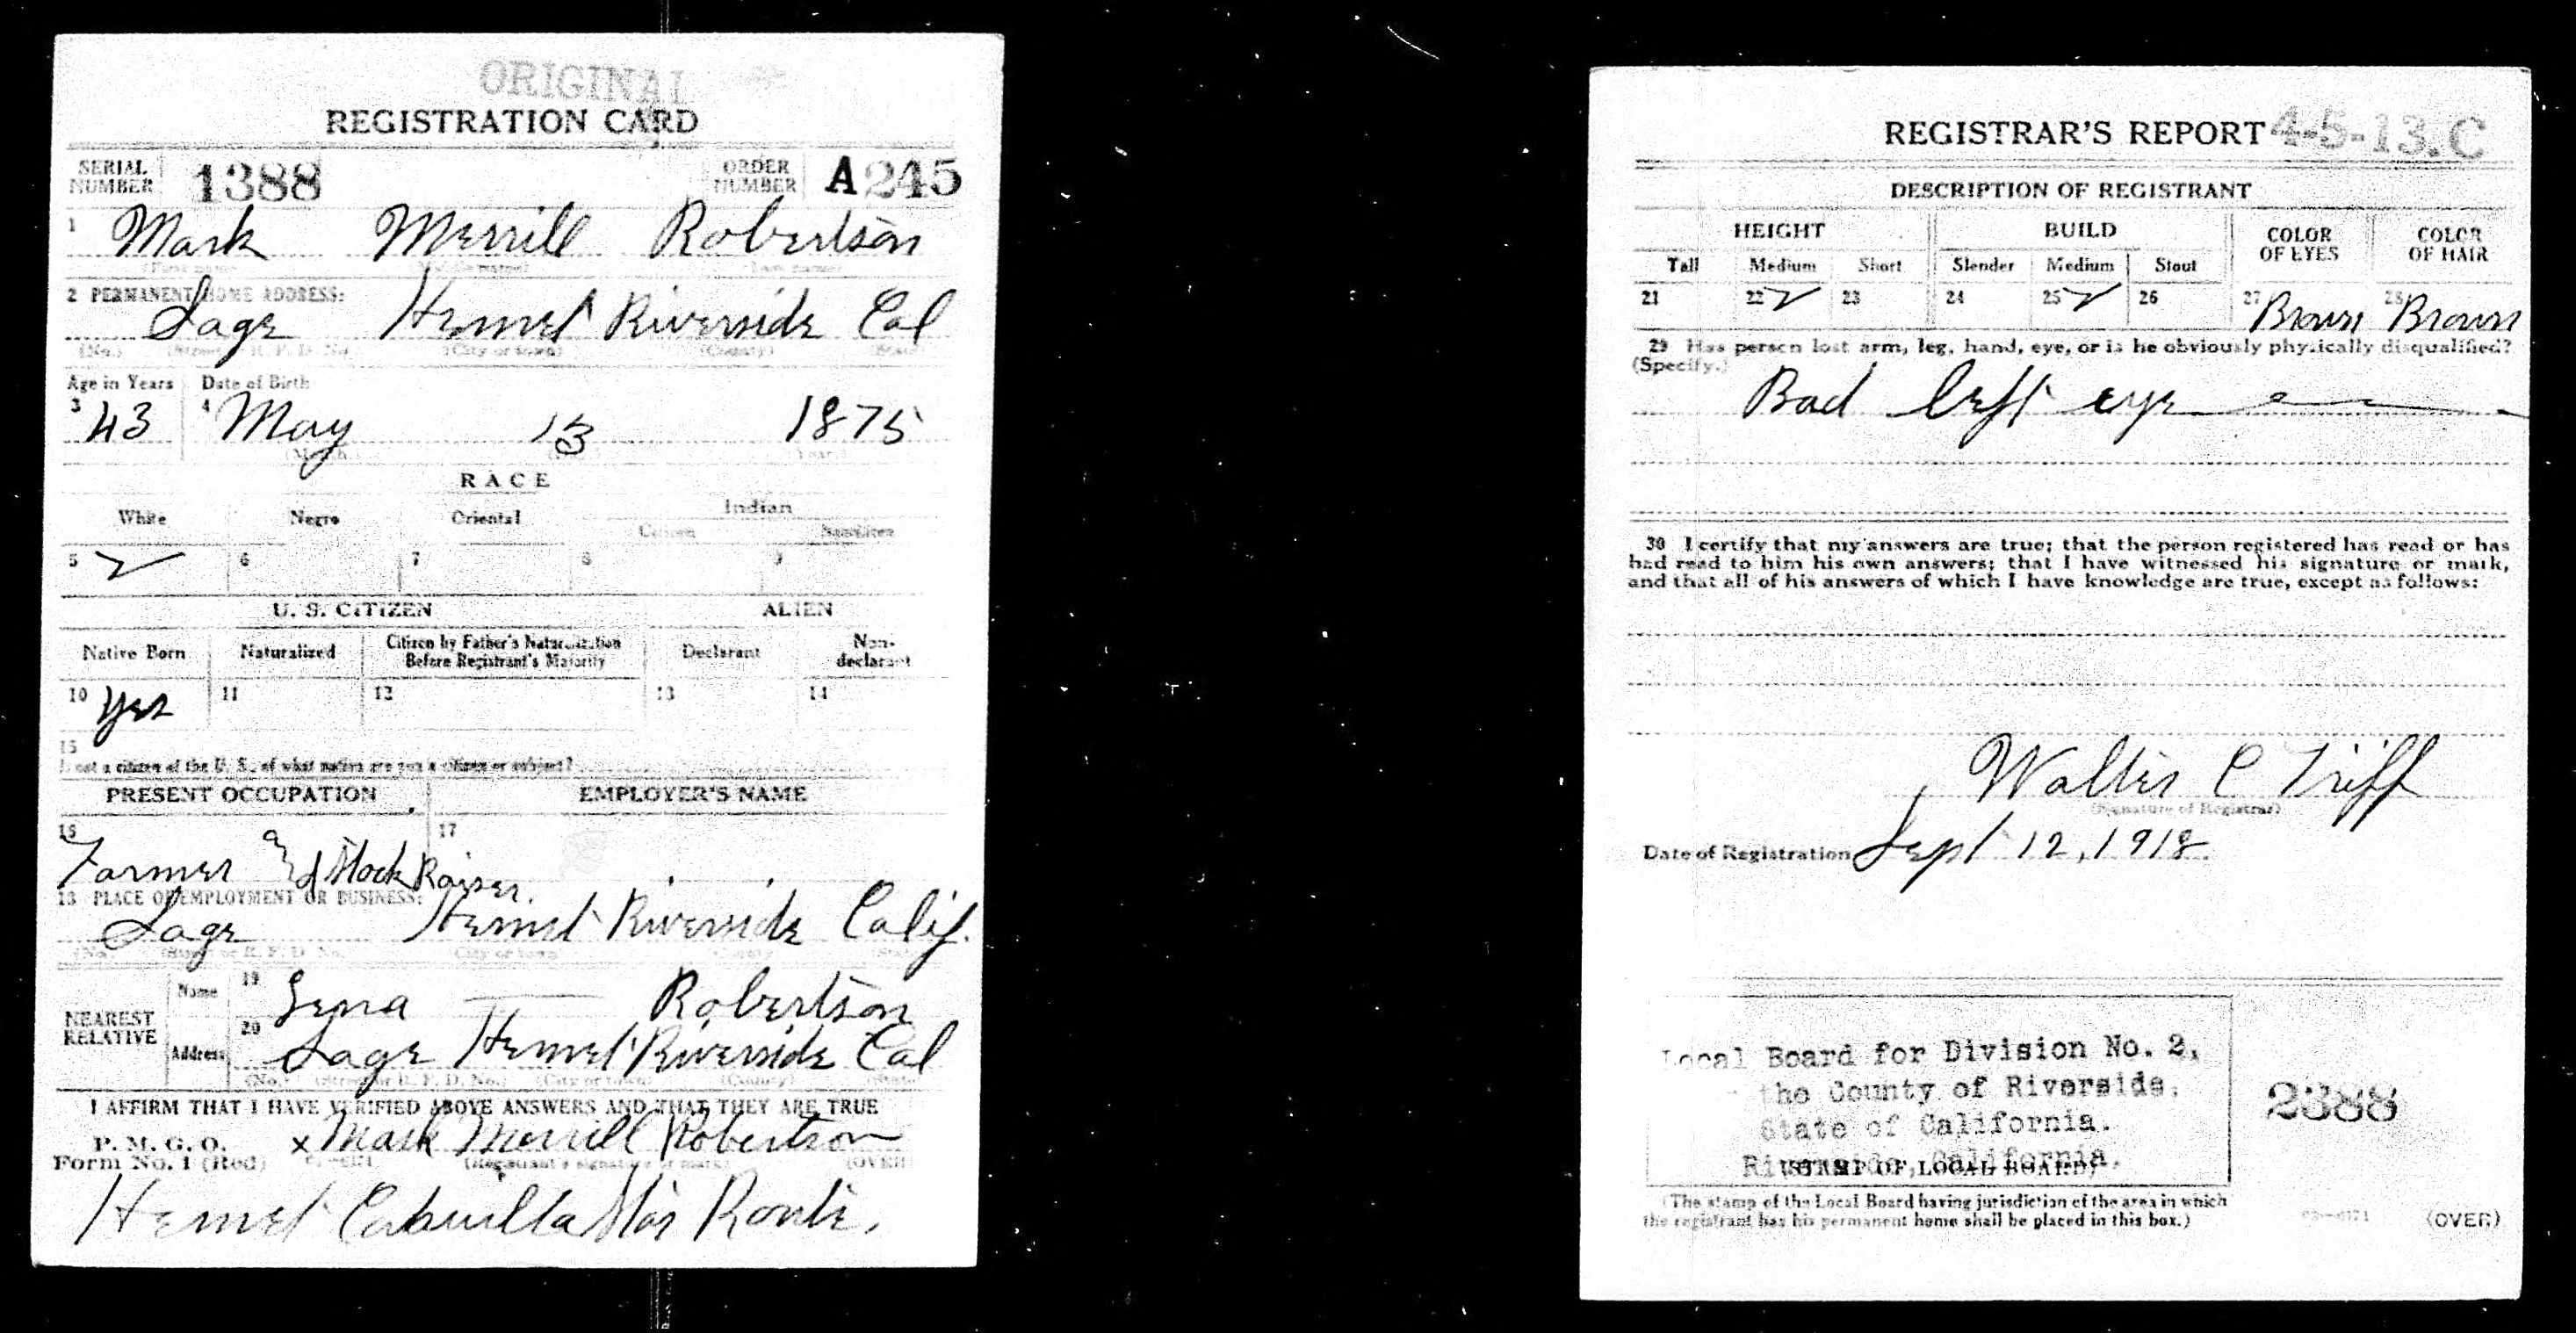 ORIGINAL
REGISTRATION CARD
SERIAL NUMBER 1388 ORDER NUMBER A245
1 Mark Merrill Robertson
(First name) (Middle name) (Last name)
2 PERMANENT HOME ADDRESS:
Sage Hemet Riverside Cal
(No.) (Street or R. F. D. No.) (City or town) (County) (State)
Age in Years Date of Birth
3 43 4 May 13 1875
(Month.) (Day.) (Year.)
RACE
White Negro Oriental Indian
Citizen Noncitizen
5 ✓ 6 7 8 9
U. S. CITIZEN ALIEN
Native Born Naturalized Citizen by Father's Naturalization Before Registrant's Majority Declarant Non-declarant
10 Yes 11 12 13 14
15
If not a citizen of the U. S., of what nation are you a citizen or subject?
PRESENT OCCUPATION EMPLOYER'S NAME
16 Farmer and Stock Raiser 17
18 PLACE OF EMPLOYMENT OR BUSINESS:
Sage Hemet Riverside Calif.
(No.) (Street or R. F. D. No.) (City or town) (County) (State)
NEAREST RELATIVE
Name 19 Lena Robertson
Address 20 Sage Hemet Riverside Cal
(No.) (Street or R. F. D. No.) (City or town) (County) (State)
I AFFIRM THAT I HAVE VERIFIED ABOVE ANSWERS AND THAT THEY ARE TRUE
P. M. G. O.
Form No. 1 (Red) x Mark Merrill Robertson
(Registrant's signature or mark) (OVER)
Hemet Cahuilla Star Route.
REGISTRAR'S REPORT 4-5-13.C
DESCRIPTION OF REGISTRANT
HEIGHT BUILD COLOR OF EYES COLOR OF HAIR
Tall Medium Short Slender Medium Stout
21 22 ✓ 23 24 25 ✓ 26 27 Brown 28 Brown
29 Has person lost arm, leg, hand, eye, or is he obviously physically disqualified?
(Specify.)
Bad left eye
30 I certify that my answers are true; that the person registered has read or has
had read to him his own answers; that I have witnessed his signature or mark,
and that all of his answers of which I have knowledge are true, except as follows:
Walter C
(Signature of Registrar)
Date of Registration Sept 12, 1918
Local Board for Division No. 2,
the County of Riverside,
State of California.
Riverside, California.
(STAMP OF LOCAL BOARD)
2388
(The stamp of the Local Board having jurisdiction of the area in which
the registrant has his permanent home shall be placed in this box.)
(OVER)